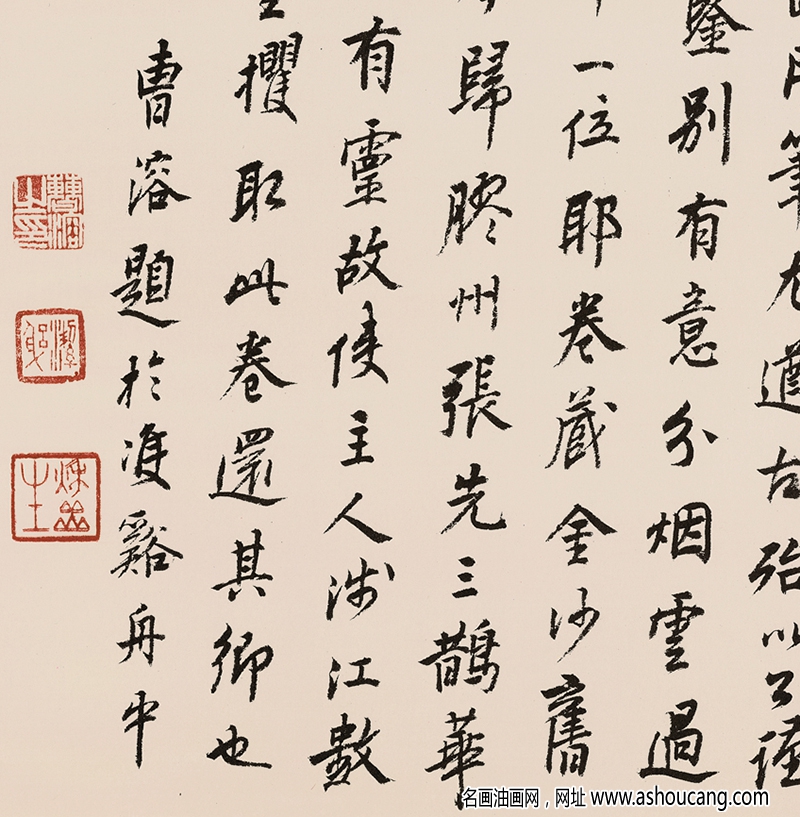 筆尤遒古殆以公謹
鑒別有意分烟雲過
一位耶卷藏金沙舊
歸膠州張先三鵲華
有靈故使主人涉江數
攫取此卷還其鄉也
曹溶題於雙谿舟中
潔躬
名画油画网，网址 www.ashoucang.com